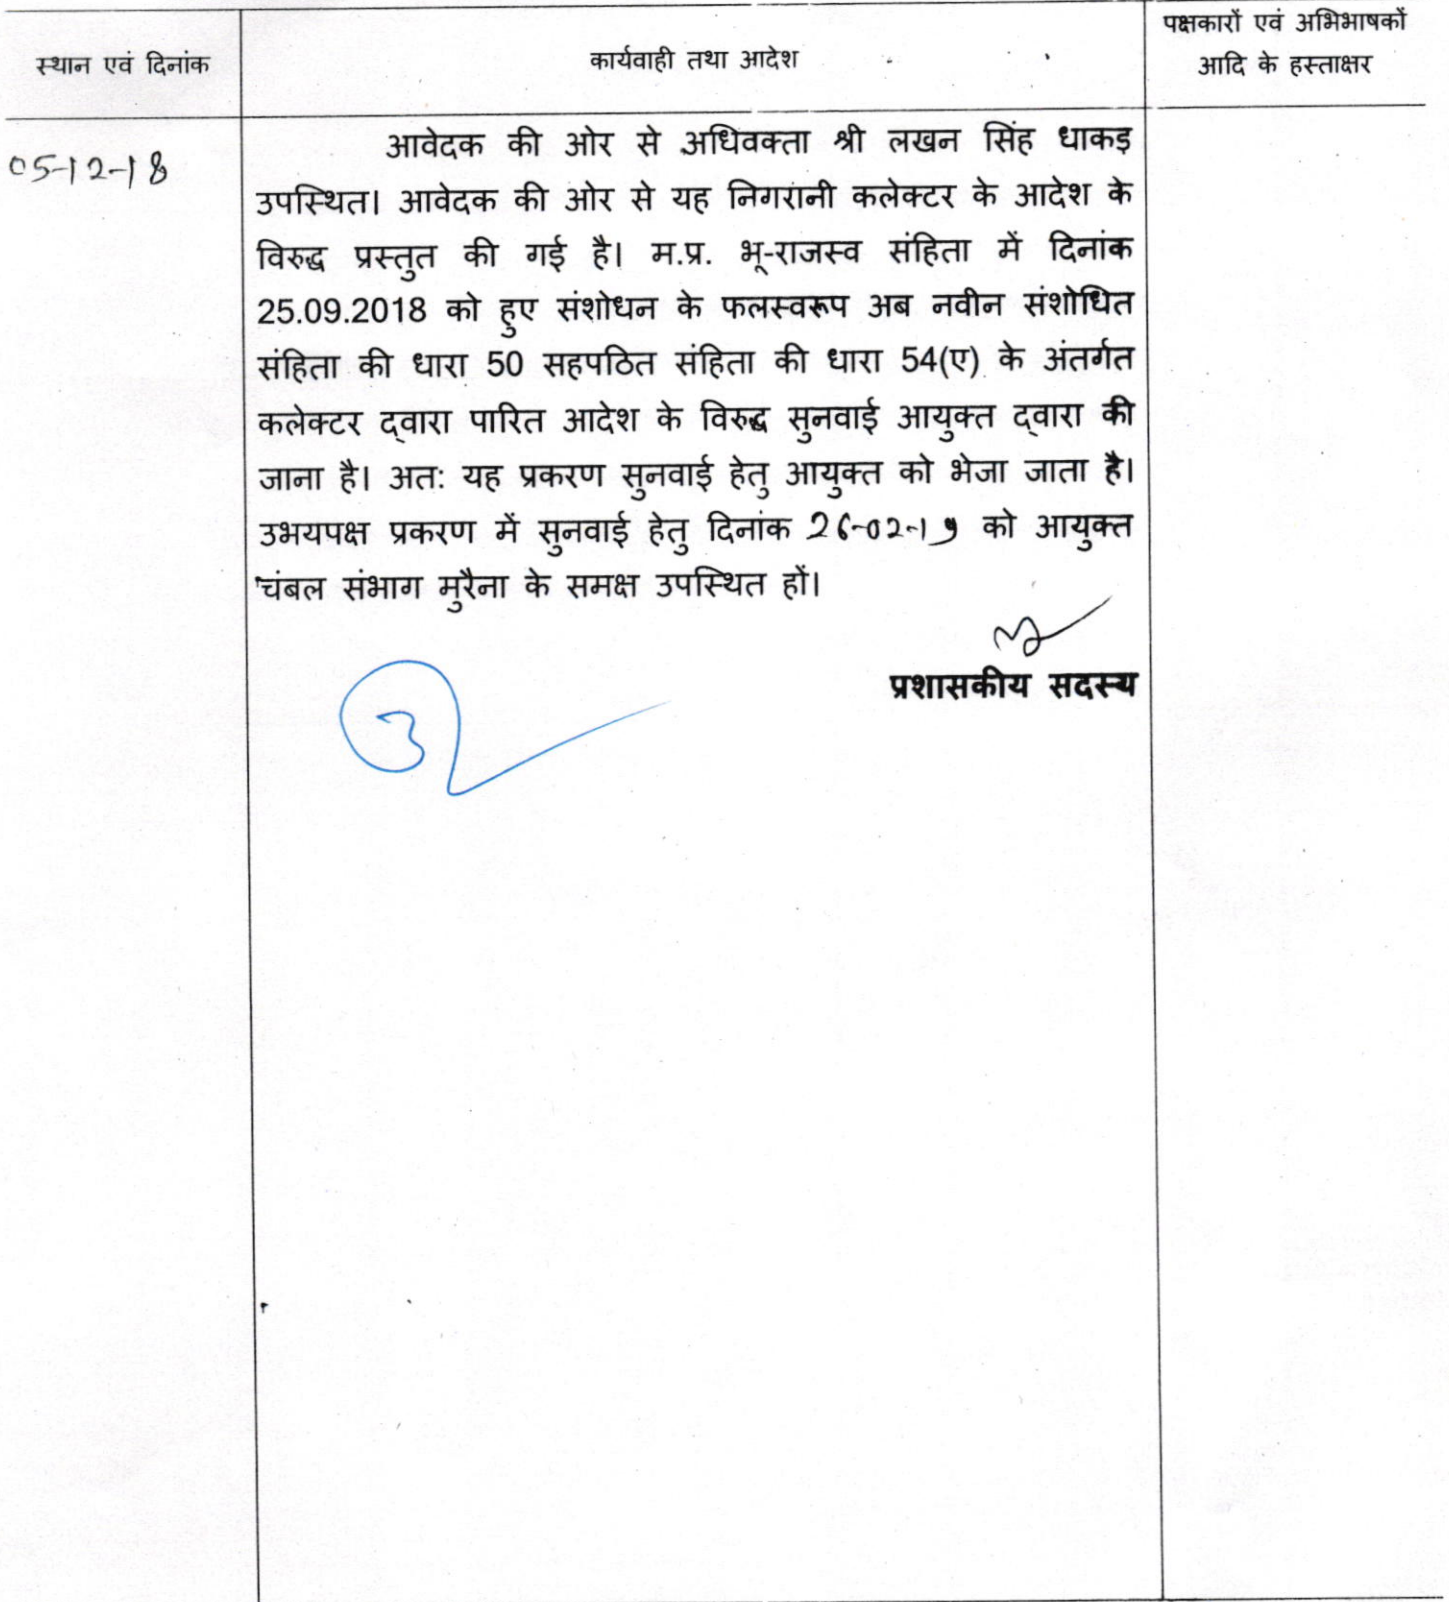 स्थान एवं दिनांक
कार्यवाही तथा आदेश
पक्षकारों एवं अभिभाषकों
आदि के हस्ताक्षर
05-12-18
आवेदक की ओर से अधिवक्ता श्री लखन सिंह धाकड़
उपस्थित। आवेदक की ओर से यह निगरानी कलेक्टर के आदेश के
विरुद्ध प्रस्तुत की गई है। म.प्र. भू-राजस्व संहिता में दिनांक
25.09.2018 को हुए संशोधन के फलस्वरूप अब नवीन संशोधित
संहिता की धारा 50 सहपठित संहिता की धारा 54(ए) के अंतर्गत
कलेक्टर द्वारा पारित आदेश के विरुद्ध सुनवाई आयुक्त द्वारा की
जाना है। अतः यह प्रकरण सुनवाई हेतु आयुक्त को भेजा जाता है।
उभयपक्ष प्रकरण में सुनवाई हेतु दिनांक 26-02-19 को आयुक्त
चंबल संभाग मुरैना के समक्ष उपस्थित हों।
प्रशासकीय सदस्य